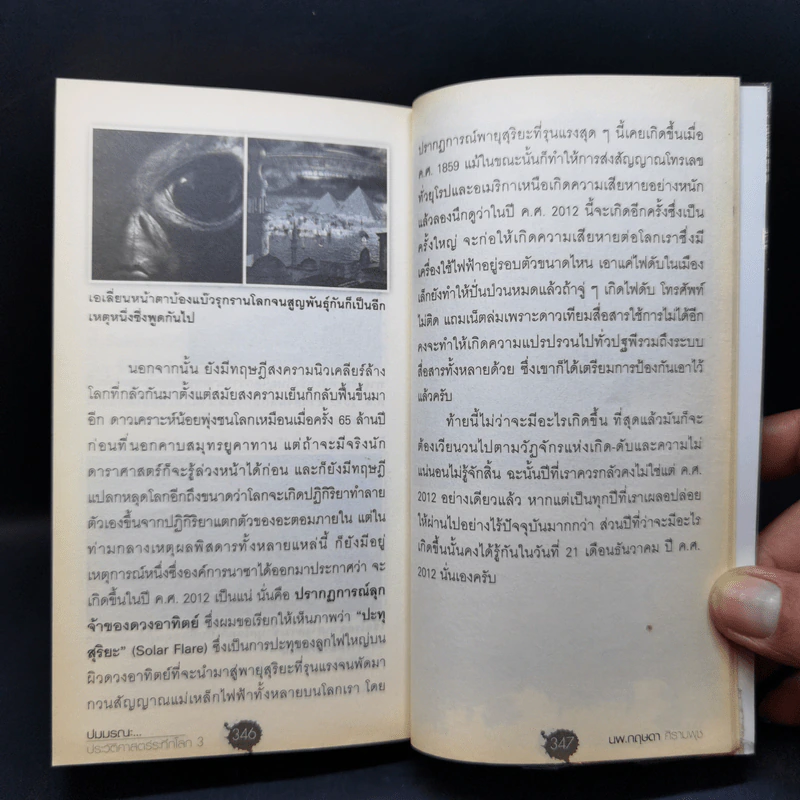 เอเลี่ยนหน้าตาบ้องแบ๊วรุกรานโลกจนสูญพันธุ์กันก็เป็นอีก
เหตุหนึ่งซึ่งพูดกันไป
นอกจากนั้น ยังมีทฤษฎีสงครามนิวเคลียร์ล้าง
โลกที่กลัวกันมาตั้งแต่สมัยสงครามเย็นก็กลับฟื้นขึ้นมา
อีก ดาวเคราะห์น้อยพุ่งชนโลกเหมือนเมื่อครั้ง 65 ล้านปี
ก่อนที่นอกคาบสมุทรยูคาทาน แต่ถ้าจะมีจริงนัก
ดาราศาสตร์ก็จะรู้ล่วงหน้าได้ก่อน และก็ยังมีทฤษฎี
แปลกหลุดโลกอีกถึงขนาดว่าโลกจะเกิดปฏิกิริยาทำลาย
ตัวเองขึ้นจากปฏิกิริยาแตกตัวของอะตอมภายใน แต่ใน
ท่ามกลางเหตุผลพิสดารทั้งหลายแหล่นี้ ก็ยังมีอยู่
เหตุการณ์หนึ่งซึ่งองค์การนาซาได้ออกมาประกาศว่า จะ
เกิดขึ้นในปี ค.ศ. 2012 เป็นแน่ นั่นคือ ปรากฏการณ์ลุก
จ้าของดวงอาทิตย์ ซึ่งผมขอเรียกให้เห็นภาพว่า "ปะทุ
สุริยะ" (Solar Flare) ซึ่งเป็นการปะทุของลูกไฟใหญ่บน
ผิวดวงอาทิตย์ที่จะนำมาสู่พายุสุริยะที่รุนแรงจนพัดมา
กวนสัญญาณแม่เหล็กไฟฟ้าทั้งหลายบนโลกเรา โดย
ปมมรณะ...
ประวัติศาสตร์ระทึกโลก 3
346
ปรากฏการณ์พายุสุริยะที่รุนแรงสุด ๆ นี้เคยเกิดขึ้นเมื่อ
ค.ศ. 1859 แม้ในขณะนั้นก็ทำให้การส่งสัญญาณโทรเลข
ทั่วยุโรปและอเมริกาเหนือเกิดความเสียหายอย่างหนัก
แล้วลองนึกดูว่าในปี ค.ศ. 2012 นี้จะเกิดอีกครั้งซึ่งเป็น
ครั้งใหญ่ จะก่อให้เกิดความเสียหายต่อโลกเราซึ่งมี
เครื่องใช้ไฟฟ้าอยู่รอบตัวขนาดไหน เอาแค่ไฟดับในเมือง
เล็กยังทำให้ปั่นป่วนหมดแล้วถ้าจู่ ๆ เกิดไฟดับ โทรศัพท์
ไม่ติด แถมเน็ตล่มเพราะดาวเทียมสื่อสารใช้การไม่ได้อีก
คงจะทำให้เกิดความแปรปรวนไปทั่วปฐพีรวมถึงระบบ
สื่อสารทั้งหลายด้วย ซึ่งเขาก็ได้เตรียมการป้องกันเอาไว้
แล้วครับ
ท้ายนี้ไม่ว่าจะมีอะไรเกิดขึ้น ที่สุดแล้วมันก็จะ
ต้องเวียนวนไปตามวัฏจักรแห่งเกิด-ดับและความไม่
แน่นอนไม่รู้จักสิ้น ฉะนั้นปีที่เราควรกลัวคงไม่ใช่แต่ ค.ศ.
2012 อย่างเดียวแล้ว หากแต่เป็นทุกปีที่เราเผลอปล่อย
ให้ผ่านไปอย่างไร้ปัจจุบันมากกว่า ส่วนปีที่ว่าจะมีอะไร
เกิดขึ้นนั้นคงได้รู้กันในวันที่ 21 เดือนธันวาคม ปี ค.ศ.
2012 นั่นเองครับ
347
นพ.กฤษดา ศิรามพุช